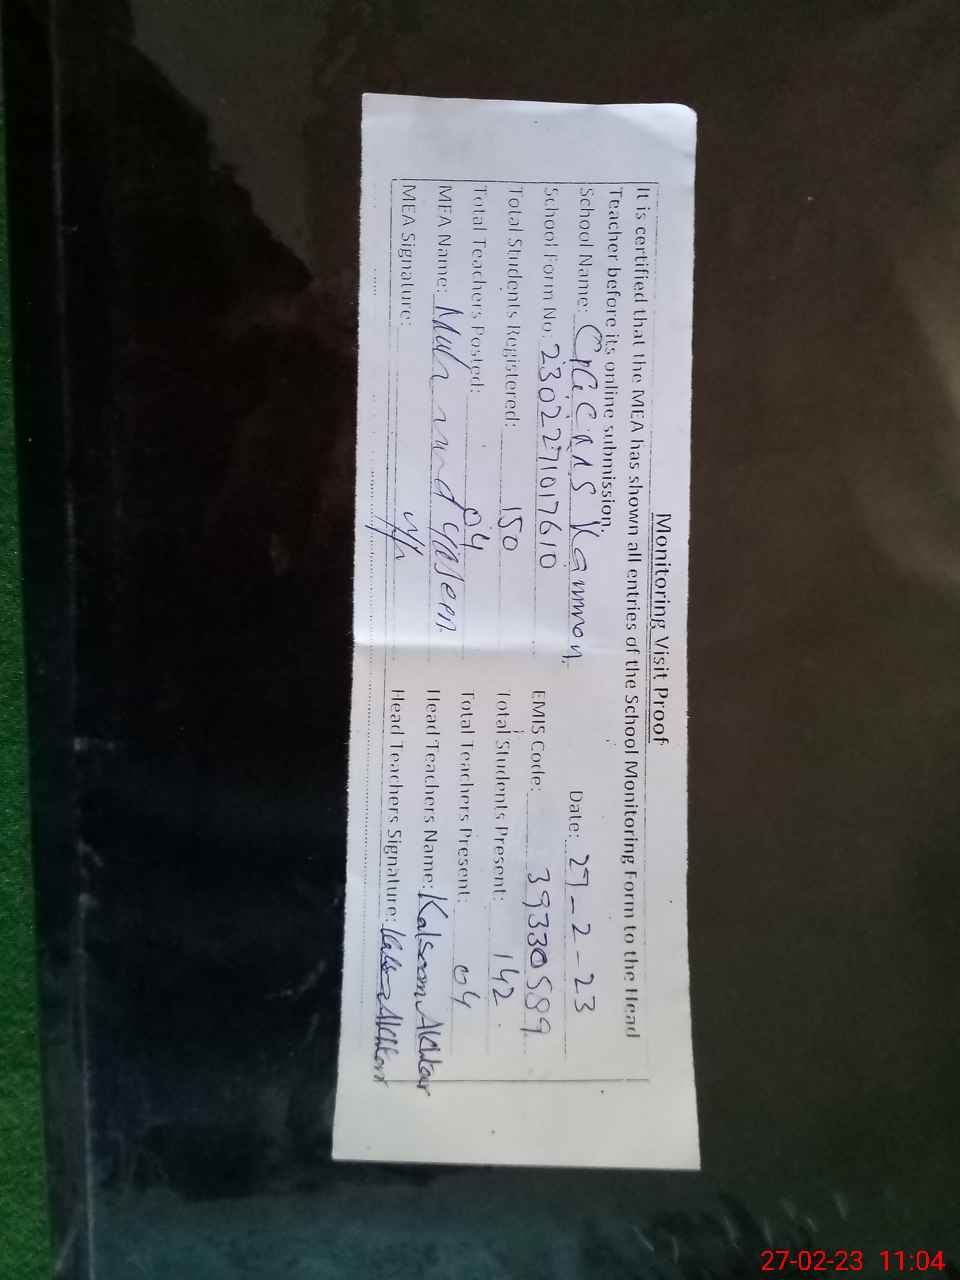 Monitoring Visit Proof
It is certified that the MEA has shown all entries of the School Monitoring Form to the Head
Teacher before its online submission.
School Name: Kammon. Date: 27-2-23
School Form No. 2302271017610 EMIS Code: 39330589
Total Students Registered: 150 Total Students Present: 142
Total Teachers Posted: 04 Total Teachers Present: 04
MEA Name: Muhammad Yaseen Head Teachers Name: Kalsoom Akhtar
MEA Signature: Head Teachers Signature: Kalsoom Akhtar
27-02-23 11:04